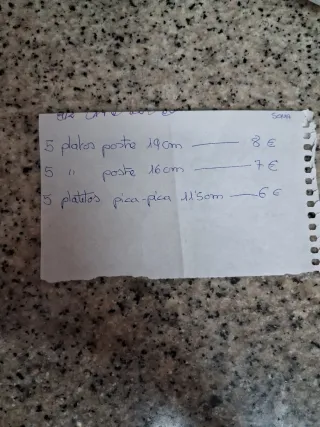 Sona
5 platos postre 19cm —— 8 €
5 " postre 16cm —— 7 €
5 platitos pica-pica 11'5cm —— 6 €